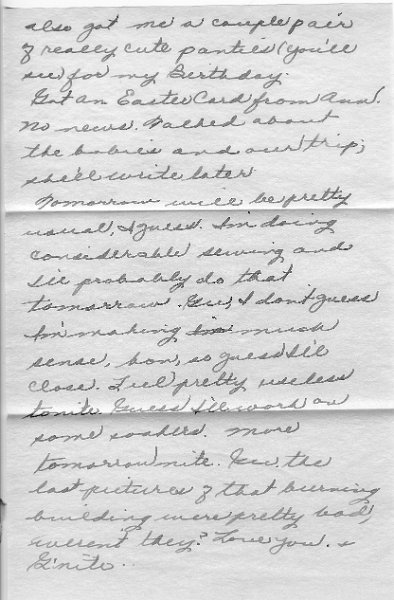 also got me a couple pair
of really cute panties (you'll
see) for my Birthday.
Got an Easter Card from Ann!
No news. Talked about
the babies and our trip;
she'll write later
Tomorrow will be pretty
usual, I guess. I'm doing
considerable sewing and
I'll probably do that
tomorrow. Gee, I don't guess
I'm making much
sense, hon, so guess I'll
close. Feel pretty useless
tonite. Guess I'll work on
some soakers. More
tomorrow nite. Gee, the
last pictures of that burning
building were pretty bad,
weren't they? Love you. &
G'nite..